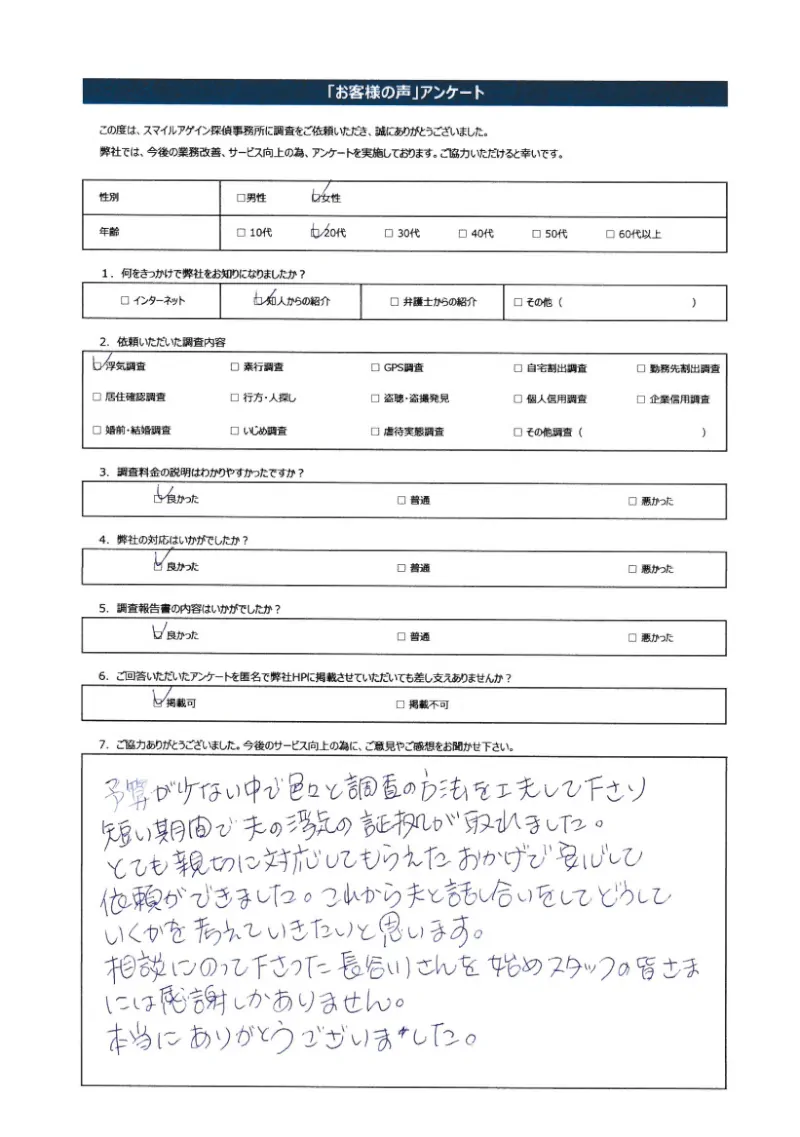 「お客様の声」アンケート
この度は、スマイルアゲイン探偵事務所に調査をご依頼いただき、誠にありがとうございました。
弊社では、今後の業務改善、サービス向上の為、アンケートを実施しております。ご協力いただけると幸いです。
性別 □男性 ☑女性
年齢 □ 10代 ☑20代 □ 30代 □ 40代 □ 50代 □ 60代以上
1. 何をきっかけで弊社をお知りになりましたか？
□ インターネット ☑知人からの紹介 □ 弁護士からの紹介 □ その他（ ）
2. 依頼いただいた調査内容
☑浮気調査 □ 素行調査 □ GPS調査 □ 自宅割出調査 □ 勤務先割出調査
□ 居住確認調査 □ 行方・人探し □ 盗聴・盗撮発見 □ 個人信用調査 □ 企業信用調査
□ 婚前・結婚調査 □ いじめ調査 □ 虐待実態調査 □ その他調査（ ）
3. 調査料金の説明はわかりやすかったですか？
☑良かった □ 普通 □ 悪かった
4. 弊社の対応はいかがでしたか？
☑良かった □ 普通 □ 悪かった
5. 調査報告書の内容はいかがでしたか？
☑良かった □ 普通 □ 悪かった
6. ご回答いただいたアンケートを匿名で弊社HPに掲載させていただいても差し支えありませんか？
☑掲載可 □ 掲載不可
7. ご協力ありがとうございました。今後のサービス向上の為に、ご意見やご感想をお聞かせ下さい。
予算が少ない中で色々と調査の方法を工夫して下さり
短い期間で夫の浮気の証拠が取れました。
とても親切に対応してもらえたおかげで安心して
依頼ができました。これから夫と話し合いをしてどうして
いくかを考えていきたいと思います。
相談にのって下さった長谷川さんを始めスタッフの皆さま
には感謝しかありません。
本当にありがとうございました。